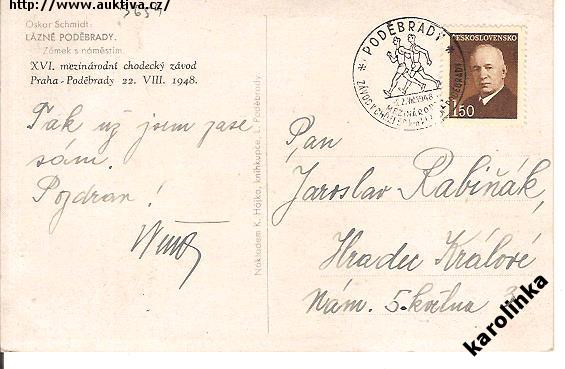 http://www.auktiva.cz/
Oskar Schmidt:
LÁZNĚ PODĚBRADY.
Zámek s náměstím.
XVI. mezinárodní chodecký závod
Praha - Poděbrady 22. VIII. 1948.
Tak už jsem zase
sám.
Pozdrav!
Nákladem K. Hájka, knihkupce, L. Poděbrady.
* PODĚBRADY *
22.VIII.1948
MEZINÁROD
ČESKOSLOVENSKO
1·50
Pan
Jaroslav Rabiňák,
Hradec Králové
Nám. 5. května 3
karolinka